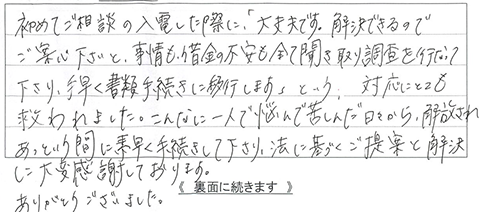 初めてご相談の入電した際に、「大丈夫です。解決できるので
ご安心下さいと、事情も借金の不安も全て聞き取り調査を行なって
下さり、手早く書類手続きに移行します」という、対応にとても
救われました。こんなに一人で悩んで苦しんだ日々から、解放され
あっという間に素早く手続きして下さり、法に基づくご提案と解決
に大変感謝しております。
《 裏面に続きます 》
ありがとうございました。